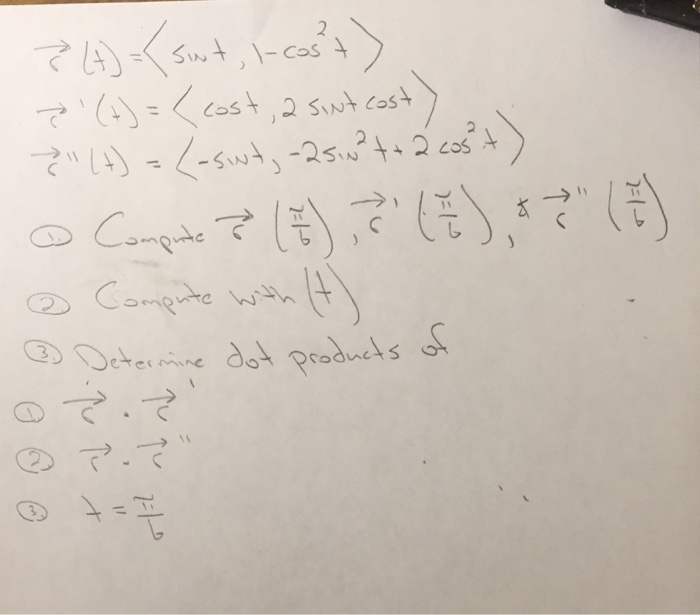 r⃗(t) = ⟨sint, 1-cos²t⟩
r⃗'(t) = ⟨cost, 2 sint cost⟩
r⃗''(t) = ⟨-sint, -2sin²t + 2cos²t⟩
① Compute r⃗(π/6), r⃗'(π/6), & r⃗''(π/6)
② Compute with (t)
③ Determine dot products of
① r⃗ · r⃗'
② r⃗ · r⃗''
③ t = π/6